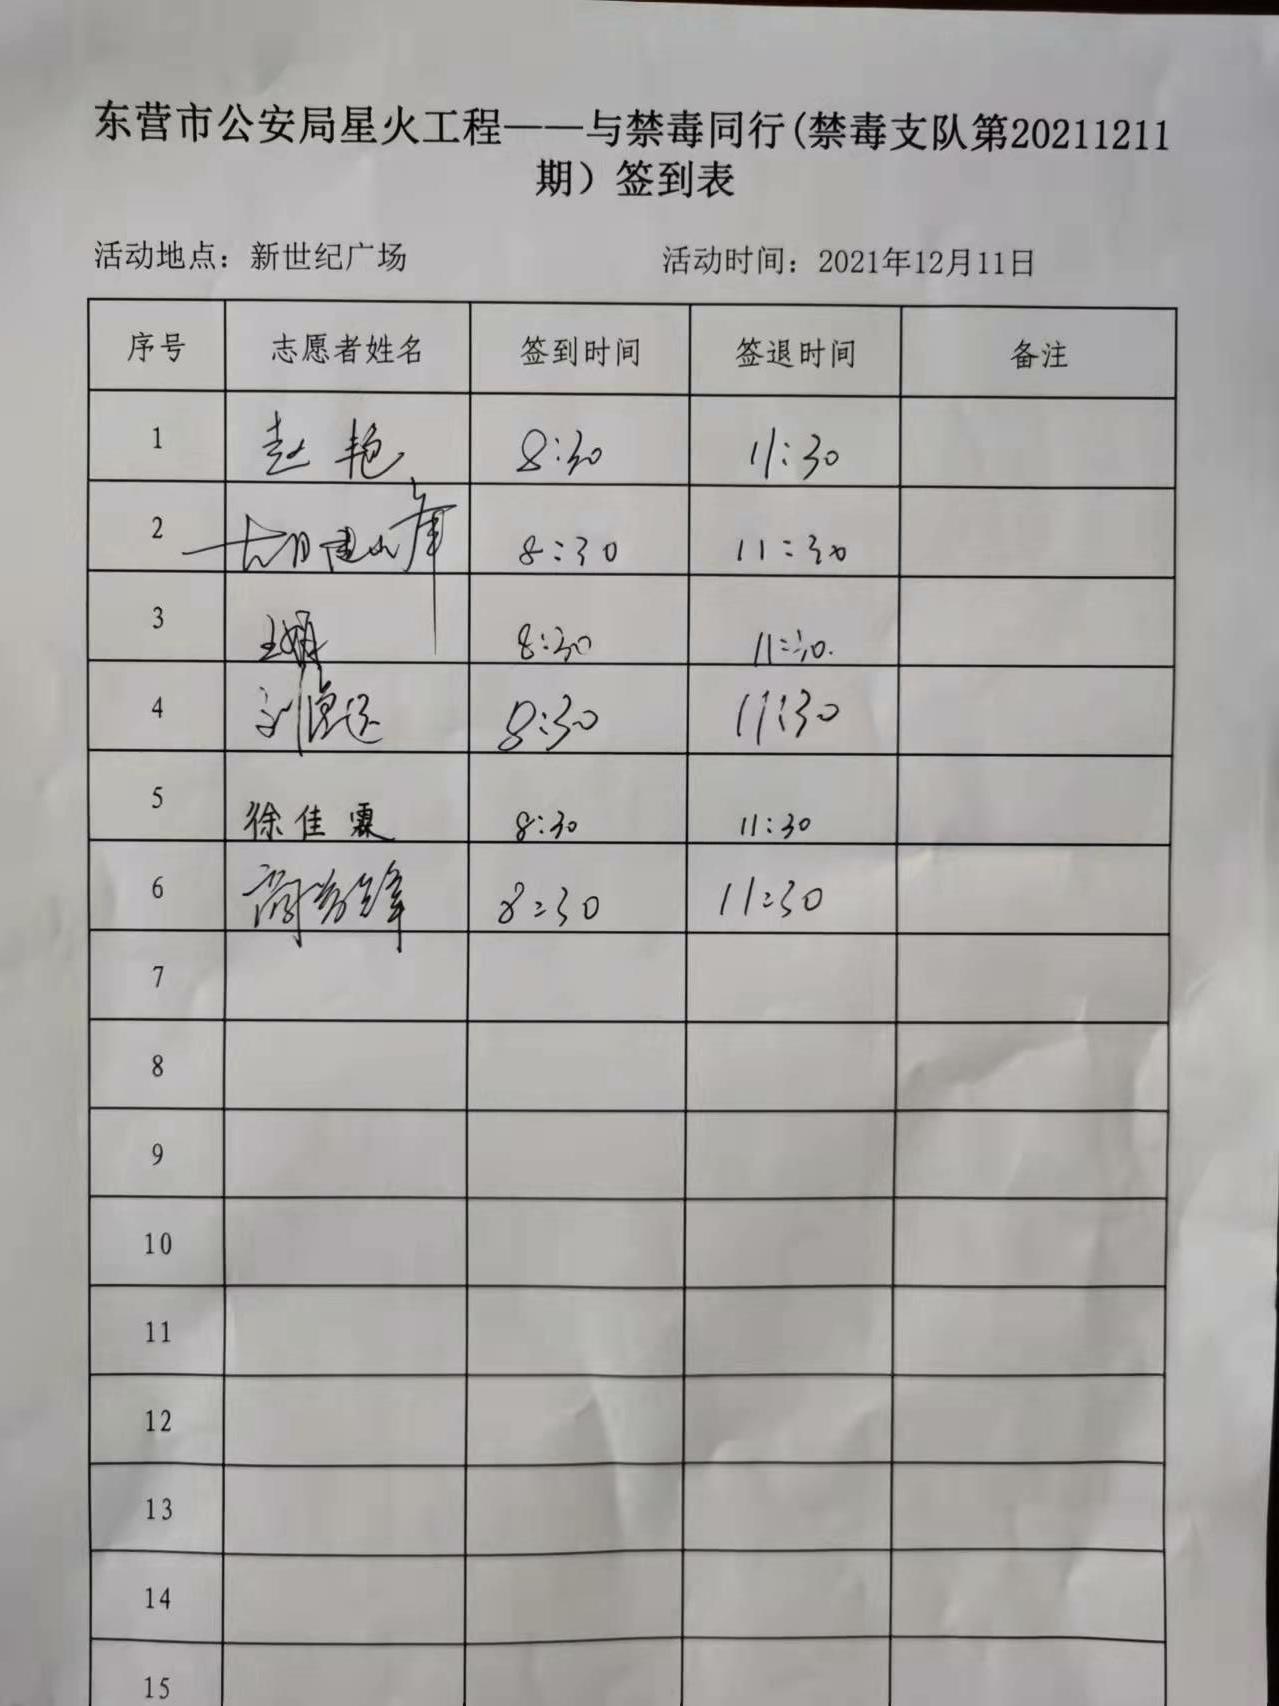 东营市公安局星火工程——与禁毒同行(禁毒支队第20211211
期）签到表
活动地点：新世纪广场 活动时间：2021年12月11日
序号 志愿者姓名 签到时间 签退时间 备注
1 赵艳 8:30 11:30
2 8:30 11:30
3 王娟 8:30 11:30
4 刘 8:30 11:30
5 徐佳霖 8:30 11:30
6 8:30 11:30
7
8
9
10
11
12
13
14
15